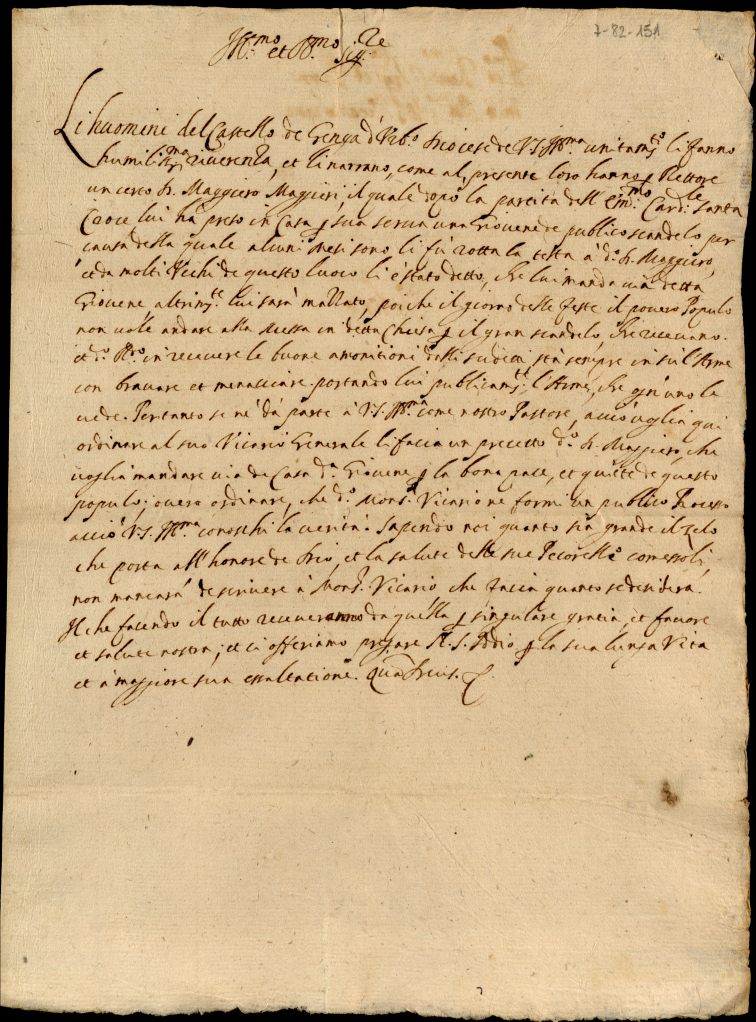 7-82-151
Ill.mo et R.mo Sig.re
Li huomini del Castello de Genga d'Urb.o Diocese de V.S. Ill.ma unitam.te li fanno
humiliss.ma riverenza, et li narrano, come al presente loro hanno p Rettore
un certo D. Maggiero Maggieri, il quale dopo la partita dell' Em.mo Card.le Santa
Croce lui ha preso in Casa p sua serva una Giovene de publico scandelo per
causa della quale alcuni Mesi sono li fù rotta la testa à d.o D. Maggiero,
et da molti Vechi de questo luoco li è stato detto, che lui manda via detta
Giovene altrim.te lui sarà mallato, poiche il giorno delle feste il povero Populo
non vole andare alla Messa in detta Chiesa p il gran scandelo, che recevano.
et d.o in recevere le buone amonitioni dalli sudetti stà sempre in sù l'Arme
con bravare et menacciare portando lui publicam.te l'Arme, che ogn'uno le
vede. Pertanto se ne dà parte à V.S. Ill.ma come nostro Pastore, acciò voglia qui
ordinare al suo Vicario Generale li facia un precetto d.o D. Maggiero, che
voglia mandare via de Casa d.a Giovene p la bona pace, et quiete de questo
populo; overo ordinare, che d.o Mons.r Vicario ne formi un publico Processo
acciò V.S. Ill.ma conoschi la verità. Sapendo noi quanto sia grande il zelo
che porta all' honore de Dio, et la salute delle sue Pecorelle
non mancarà de scrivere à Mons.r Vicario che facia quanto se desidera.
Il che facendo il tutto receveranno da quella p singulare gratia, et favore
et salute nostra; et ci offeriamo pregare N.S. Iddio p la sua lunga Vita
et à maggiore sua essaltatione. Quam Deus. &